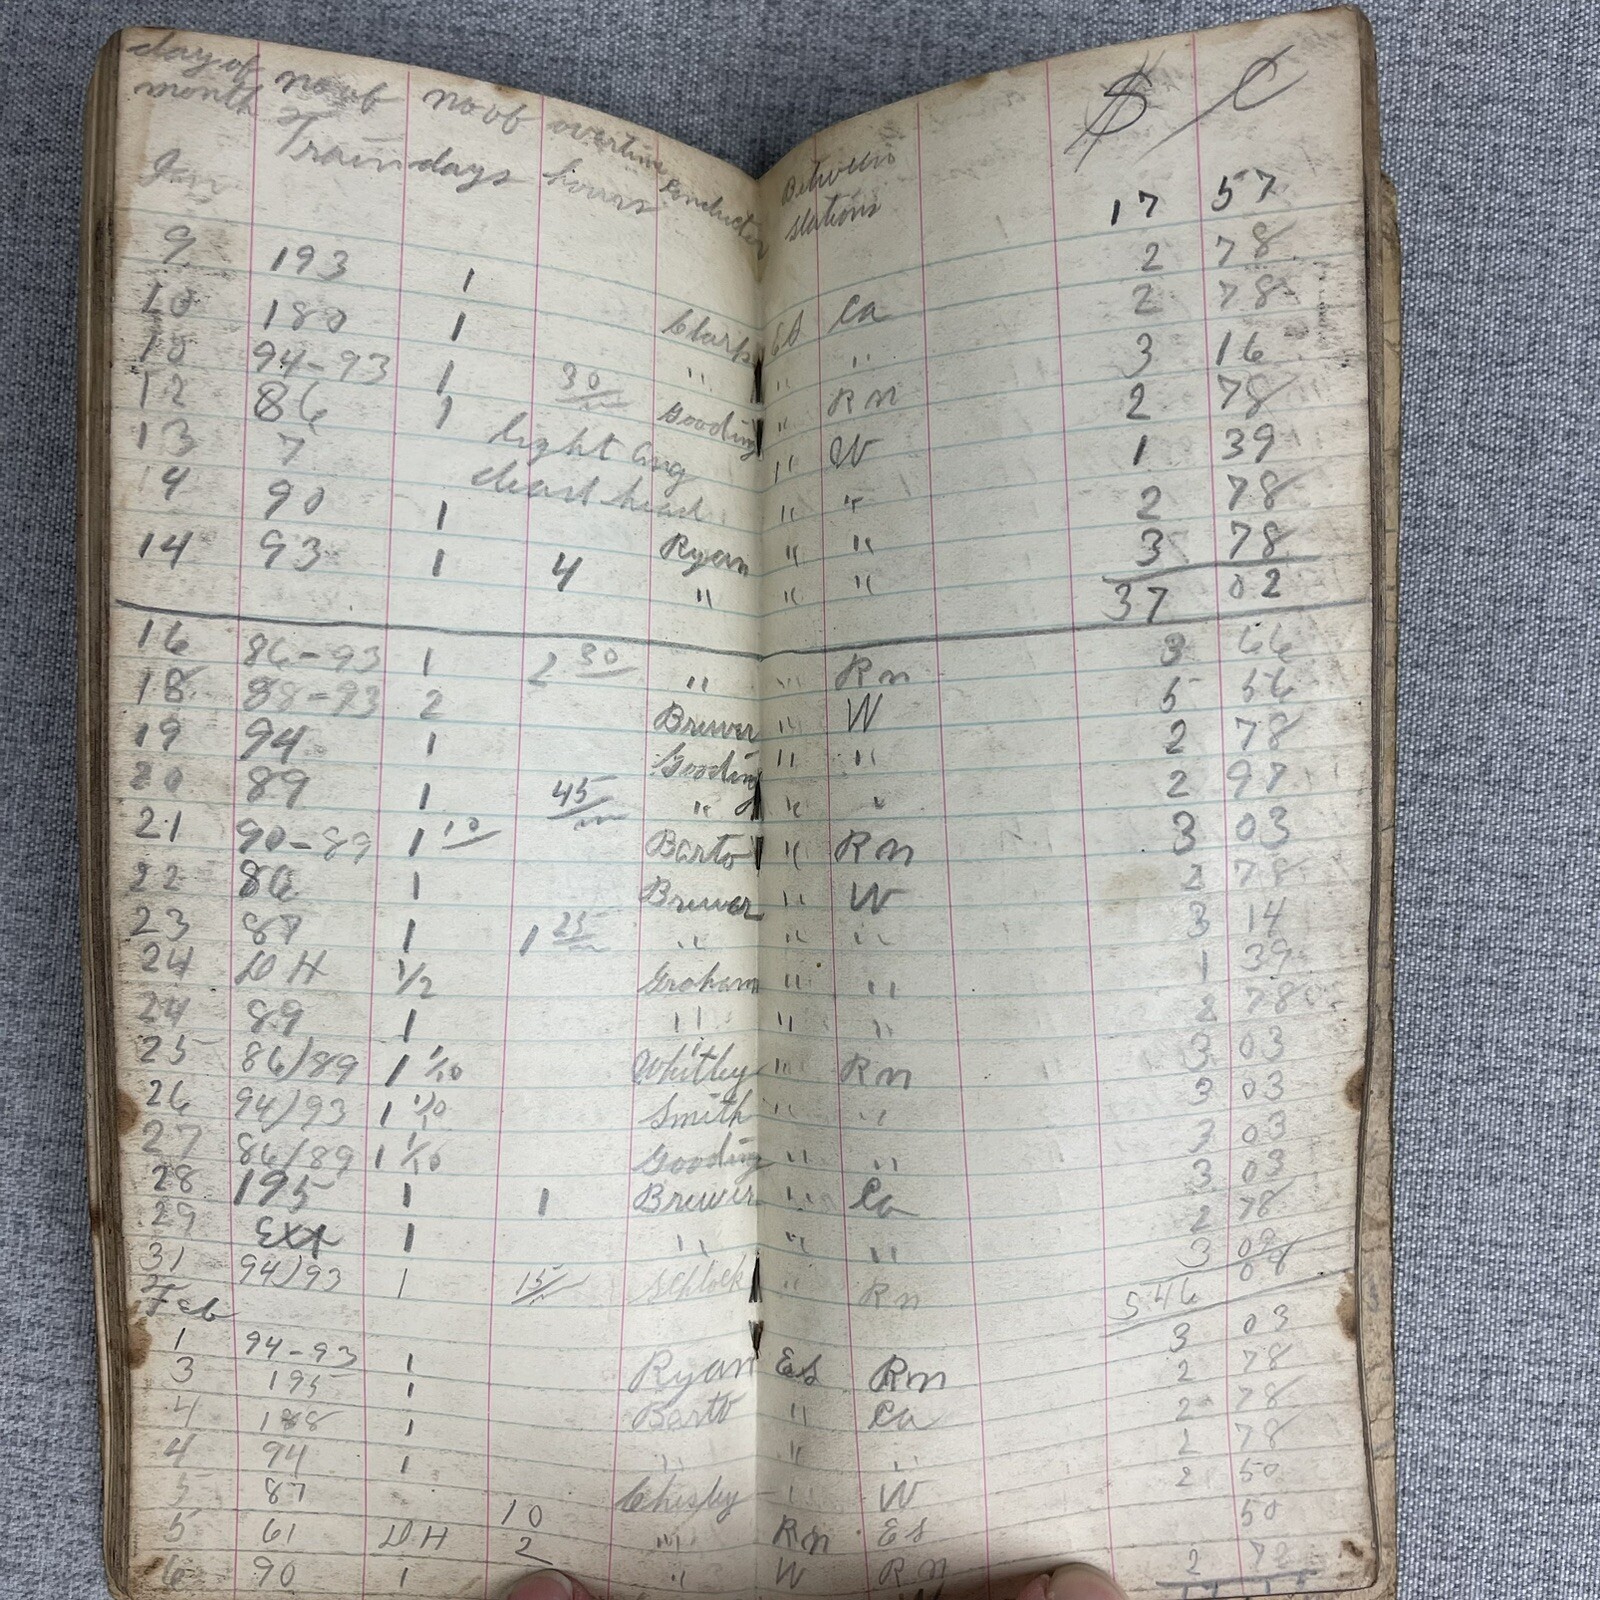 day of month no of Train no of days overtime hours conductor Between stations $ C
Jan 17 57
9 193 1 Clark Es Ca 2 78
10 180 1 " " " 2 78
94-93 1 30 Gooding " Rn 3 16
12 86 1 " W 2 78
13 7 light Eng dead head " " 1 39
14 90 1 Ryan " " 2 78
14 93 1 4 " " " 3 78
37 02
16 86-93 1 2 30 " " Rn 3 66
18 88-93 2 Brewer " W 5 56
19 94 1 Gooding " " 2 78
20 89 1 45 " " " 2 97
21 90-89 1 10 Barto " Rn 3 03
22 86 1 Brewer " W 2 78
23 87 1 1 25 " " " 3 14
24 DH 1/2 Graham " " 1 39
24 89 1 " " " 2 78
25 86/89 1 1/10 Whitley " Rn 3 03
26 94/93 1 1/10 Smith " " 3 03
27 86/89 1 1/10 Gooding " " 3 03
28 195 1 1 Brewer " Ca 3 03
29 Ext 1 " " " 2 78
31 94/93 1 15 " Rn 3
Feb
1 94-93 1 Ryan Es Rn 3 03
3 195 1 Barto " Ca 2 78
4 188 1 " " " 2 78
4 94 1 Chisley " W 2 78
5 87 10 " 2 50
5 61 DH 2 " Rn Es 50
6 90 1 " W Rn 2 72